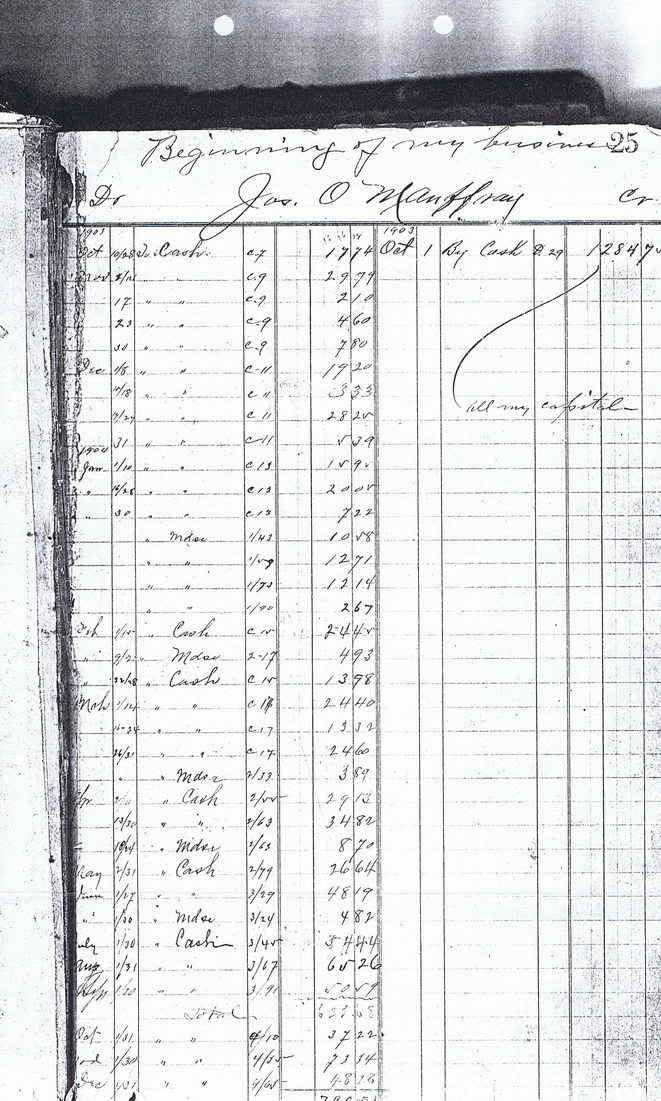 Beginning of my business 25
Dr Jos. O Mauffray Cr
1903 1903
Oct 10/28 To Cash. C.7 1774 Oct 1 By Cash D.29 12847
Nov " " C.9 2979
17 " " C.9 210
23 " " C.9 460
30 " " C.9 780
Dec 1/8 " " C-11 1920
" " C 11 333
" " C 11 2825
31 " " C-11 539
all my capital
1904
Jan 1/10 " " C 13 1595
" " " C 13 2005
" 30 " " C 13 722
" Mdse 1/43 1058
" " 1/59 1271
" " 1/73 1214
" " 1/90 267
Feb 1/15 " Cash C 15 2445
" " Mdse 2-17 493
" 22/28 " Cash C 15 1398
Mch 1/14 " " C 17 2440
" " C 17 1332
26/31 " " C 17 2460
" " Mdse 2/33 389
Apr " Cash 2/55 2913
13/30 " " 2/63 3482
" Mdse 2/63 870
May 2/31 " Cash 2/79 2664
June 1/27 " " 3/29 4819
" 1/30 " Mdse 3/24 482
July 1/30 " Cash 3/45 5444
Aug 1/31 " " 3/67 6526
Sep 1/30 " " 3/91 5059
Total 63268
Oct 1/31 " " 4/10 3722
Nod 1/30 " " 4/35 7334
Dec 1/31 " " 4/65 4818